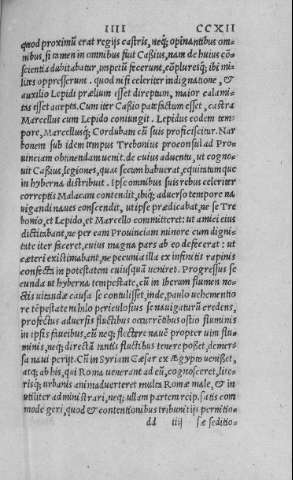 IIII CCXII
quod proximũ erat regijs castris, neq; opinantibus om
nibus, si tamen in omnibus fuit Caßius, nam de huius cõ
scientia dubitabatur, impetũ fecerunt, cõpluresq; ibi mi
lites oppresserunt. quod nisi celeriter indignatione, &
auxilio Lepidi prælium esset direptum, maior calami
tas esset accepta. Cum iter Caßio patefactum esset, castra
Marcellus cum Lepido coniungit. Lepidus eodem tem
pore, Marcellusq; Cordubam cũ suis proficiscitur. Nar
bonem sub idem tempus Trebonius proconsul ad Pro
uinciam obtinendam uenit. de cuius aduentu, ut cogno
uit Caßius, legiones, quas secum habuerat, equitatumque
in hyberna distribuit. Ipse omnibus suis rebus celeriter
correptis Malacam contendit, ibiq; aduerso tempore na
uigandi naues conscendit, ut ipse prædicabat, ne se Tre
bonio, et Lepido, et Marcello committeret: ut amici eius
dictitabant, ne per eam Prouinciam minore cum digni
tate iter faceret, cuius magna pars ab eo defecerat: ut
cæteri existimabant, ne pecunia illa ex infinitis rapinis
confecta in potestatem cuiusquã ueniret. Progressus se
cunda ut hyberna tempestate, cũ in Iberum flumen no
ctis uitandæ causa se contulisset, inde, paulo uehementio
re tẽpestate nihilo periculosius se nauigaturũ credens,
profectus aduersis fluctibus occurrẽtibus ostio fluminis
in ipsis faucibus, cũ neq; flectere nauẽ propter uim flu
minis, neq; directã tantis fluctibus tenere posset, demer
sa naui perijt. Cũ in Syriam Cæsar ex Aegypto uenißet,
atq; ab his, qui Roma uenerant ad eũ, cognosceret, lite
risq; urbanis animaduerteret multa Romæ male, & in
utiliter administrari, neq; ullam partem reip. satis com
mode geri, quod & contentionibus tribunitijs pernitio
dd iiij sæ seditio-